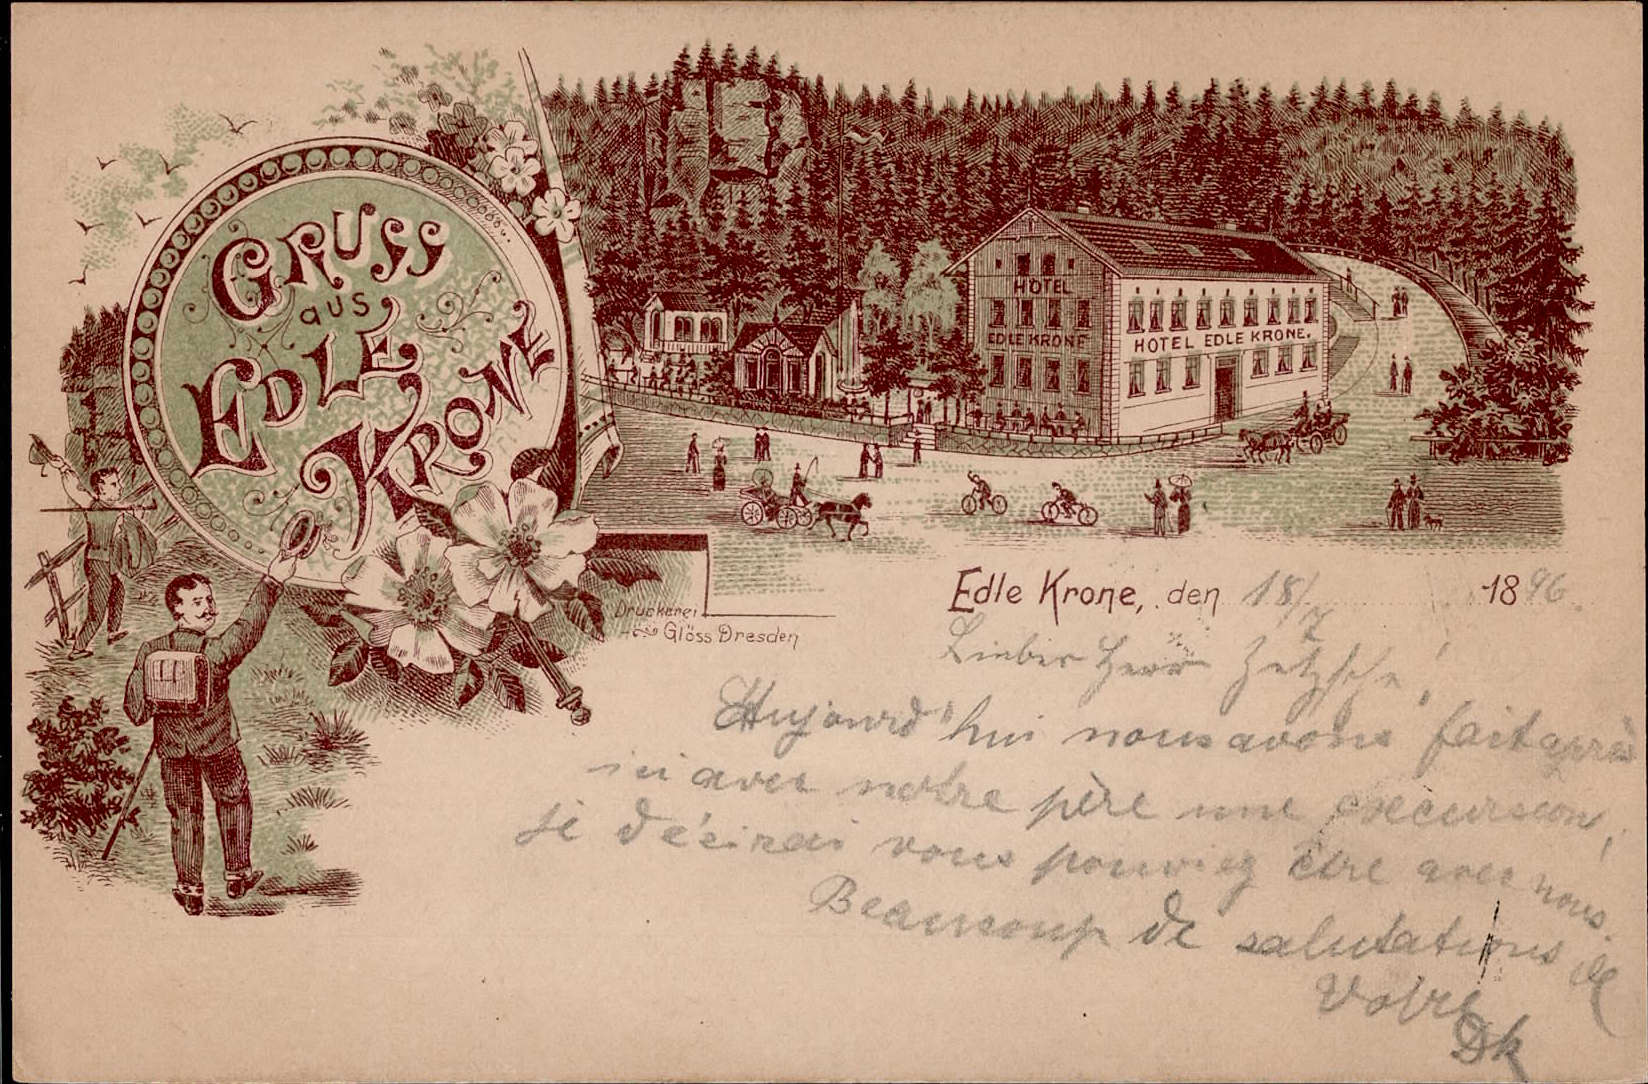 GRUSS
aus
EDLE
KRONE
HOTEL
EDLE KRONE
HOTEL EDLE KRONE.
Druckerei
Glöss Dresden
Edle Krone, den 18/7 1896.
Lieber Herr Zetzsche!
Aujourd'hui nous avons fait après
ici avec notre père une excursion,
je désirai vous pouviez être avec nous.
Beaucoup de salutations de
Votre
DK